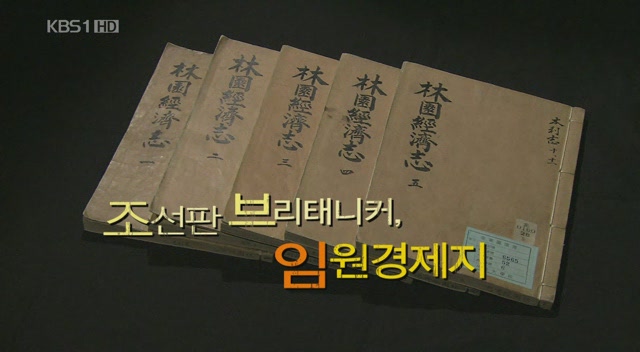 KBS1 HD
林園經濟志 一
林園經濟志 二
林園經濟志 三
林園經濟志 四
林園經濟志 五
조선판 브리태니커,
임원경제지
5565
52